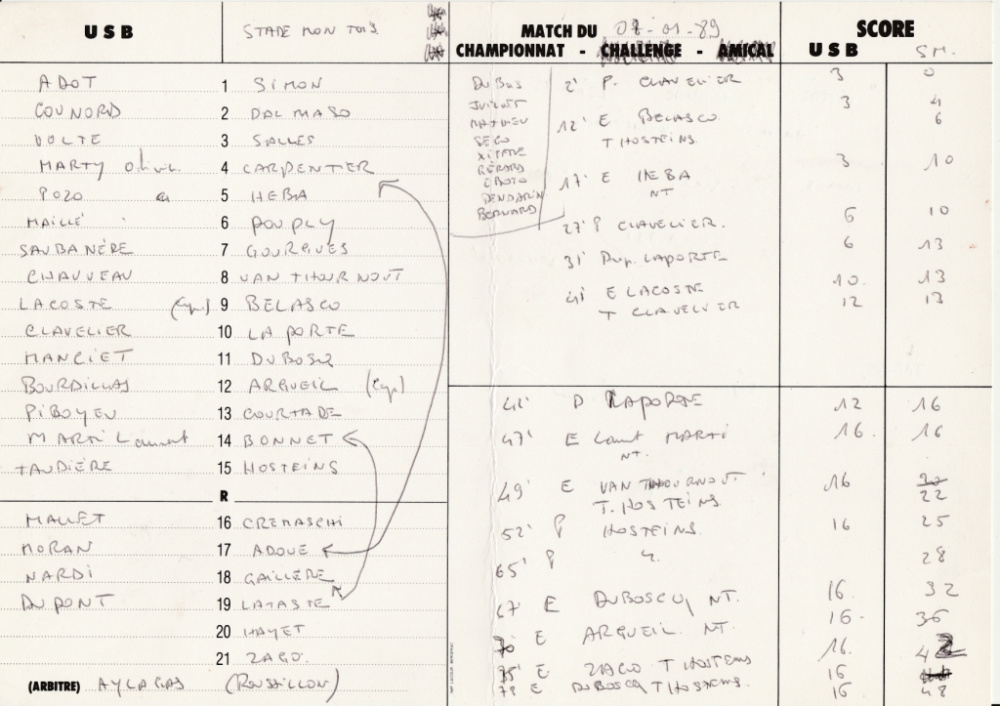 USB STADE MONTOIS
ADOT 1 SIMON
COUNORD 2 DAL MASO
VOLTE 3 SALLES
MARTY 4 CARPENTIER
POZO 5 HEBA
MAILLÉ 6 POUPLY
SAUBANÈRE 7 GOURGUES
CHAUVEAU 8 VAN THOURNOUT
LACOSTE (Cap.) 9 BELASCO
CLAVELIER 10 LAPORTE
MANCIET 11 DUBOSCQ
BOURDILLAS 12 ARGUEIL (Cap.)
PIBOYEU 13 COURTADE
MARTI Laurent 14 BONNET
TAUDIÈRE 15 HOSTEINS
R
MALLET 16 CREMASCHI
MORAN 17 ADOUE
NARDI 18 GAILLÈRE
DUPONT 19 LATASTE
20 HAYET
21 ZAGO.
(ARBITRE) AYLAGAS (ROUSSILLON)
MATCH DU 08-01-89
CHAMPIONNAT - CHALLENGE - AMICAL
SCORE
USB SM.
DUBUS
MATHIEU
SECO
GÉRARD
BERNARD
2' P. CLAVELIER 3 0
12' E BELASCO 3 4
T HOSTEINS 6
17' E HEBA 3 10
NT
27' P CLAVELIER. 6 10
31' Drop. LAPORTE 6 13
41' E LACOSTE 10. 13
T CLAVELIER 12 13
D LAPORTE 12 16
47' E Laurent MARTI 16. 16
NT.
49' E VAN THOURNOUT. 16 20
T. HOSTEINS 22
52' P HOSTEINS. 16 25
65' P 28
67' E DUBOSCQ NT. 16. 32
70' E ARGUEIL. NT. 16. 36
75' E ZAGO T HOSTEINS 16. 42
78 E DUBOSCQ T HOSTEINS. 16 48